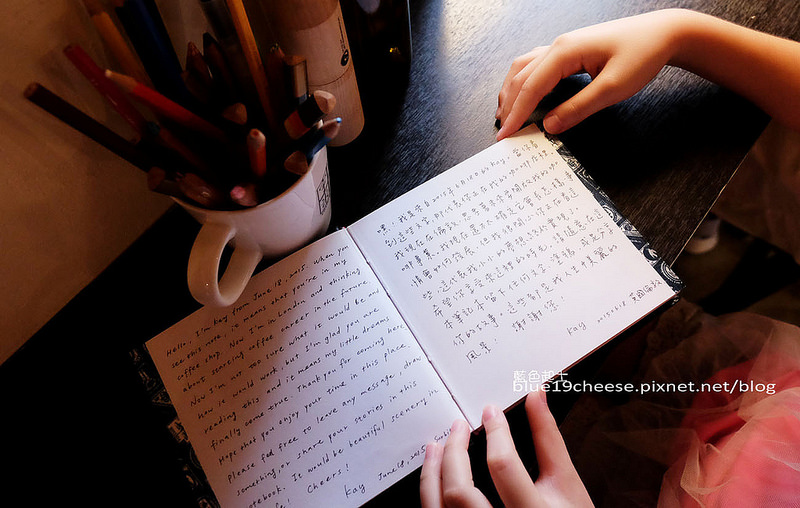 Hello, I'm Kay from June 18, 2015. when you
see this note, it means that you're in my
coffee shop. Now I'm in London and thinking
about starting coffee career in the future.
Now I'm not too sure what it would be and
how it would work, but I'm glad you are
reading this and it means my little dreams
finally come true. Thank you for coming here.
Hope that you enjoy your time in this place,
please feel free to leave any message, draw
something, or share your stories in this
notebook. It would be beautiful scenery in
life! Cheers!
Kay June 18, 2015.
嘿，我是來自2015年6月18日的Kay，當你看
到這些文字，即代表你正在我的咖啡店裡，
我現在在倫敦，思考著未來
啡事業，我現在還不太確定它會長怎樣、事
情會如何發展，但我很開心你正在看這
些，這代表我小小的夢想終於實現了。
希望你享受在這裡的時光，請隨意在這
本筆記本留下任何文字、塗鴉、或是分享
你的故事，這些都是我人生中美麗的
風景。謝謝你。
Kay 2015.06.18 英國倫敦
藍色起士
blue19cheese.pixnet.net/blog